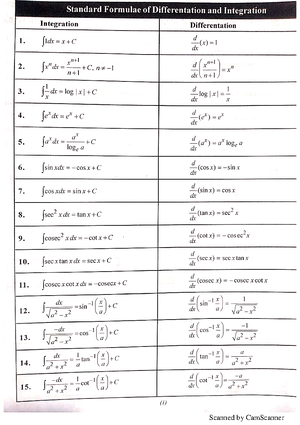 Standard Formulae of Differentation and Integration
Integration Differentation
1. ∫1dx = x + C d/dx (x) = 1
2. ∫xⁿ dx = xⁿ⁺¹/(n+1) + C, n ≠ −1 d/dx (xⁿ⁺¹/(n+1)) = xⁿ
3. ∫1/x dx = log |x| + C d/dx log |x| = 1/x
4. ∫eˣ dx = eˣ + C d/dx (eˣ) = eˣ
5. ∫aˣ dx = aˣ/logₑ a + C d/dx (aˣ) = aˣ logₑ a
6. ∫sin xdx = −cos x + C d/dx (cos x) = −sin x
7. ∫cos xdx = sin x + C d/dx (sin x) = cos x
8. ∫sec² x dx = tan x + C d/dx (tan x) = sec² x
9. ∫cosec² x dx = −cot x + C d/dx (cot x) = −cosec² x
10. ∫sec x tan x dx = sec x + C d/dx (sec x) = sec x tan x
11. ∫cosec x cot x dx = −cosec x + C d/dx (cosec x) = −cosec x cot x
12. ∫dx/√(a² − x²) = sin⁻¹ (x/a) + C d/dx (sin⁻¹ x/a) = 1/√(a² − x²)
13. ∫−dx/√(a² − x²) = cos⁻¹ (x/a) + C d/dx (cos⁻¹ x/a) = −1/√(a² − x²)
14. ∫dx/(a² + x²) = 1/a tan⁻¹ (x/a) + C d/dx (tan⁻¹ x/a) = a/(a² + x²)
15. ∫−dx/(a² + x²) = 1/a cot⁻¹ (x/a) + C d/dx (cot⁻¹ x/a) = −a/(a² + x²)
(i)
Scanned by CamScanner